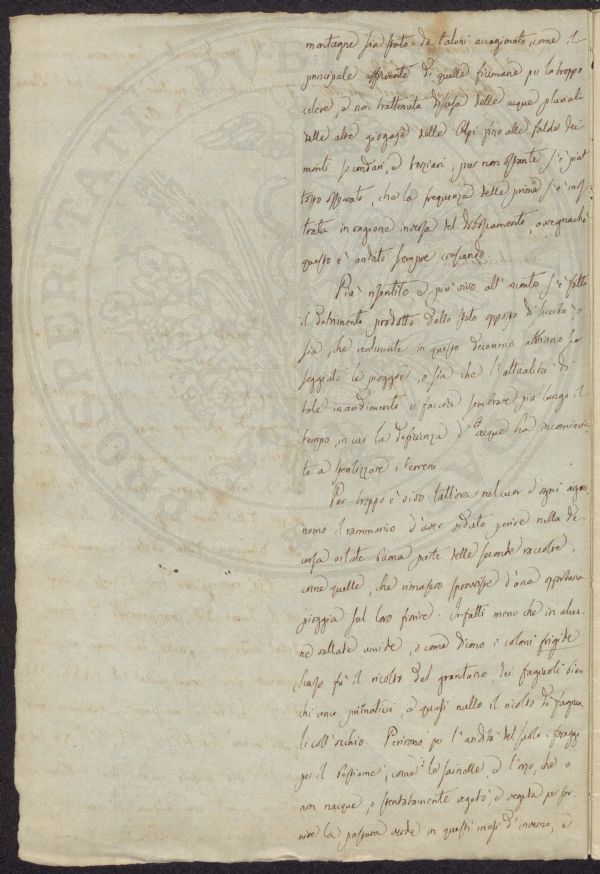 montagne sia stato da taluni accagionato, come il
principale efficiente di quelle fiumane per la troppo
celere, e non trattenuta discesa delle acque pluviali
dalle alte giogaje delle Alpi fino alle falde dei
monti secondarj, e terziarj, pur non ostante s'è piut
tosto osservato, che la frequenza delle prime s'è mos
trata in ragione inversa del disboscamento, avvegnachè
questo è andato sempre crescendo.
Più risentito e più vivo all'incontro s'è fatto
il detrimento prodotto dallo stato opposto di siccità, o
sia, che realmente in questo decennio abbiano scar
seggiato le piogge, o sia che l'attualità di
tale inaridimento ci faccia sembrare più lungo il
tempo, in cui la deficienza d'acqua ha incomincia
to a sterilizzare i terreni.
Pur troppo è vivo tuttora nel cuor d'ogni agro
nomo il rammarico d'aver veduto perire nella de
corsa estate buona parte delle seconde raccolte,
come quelle, che rimasero sprovviste d'una opportuna
pioggia sul loro fiorire. Infatti meno che in alcu
ne vallate umide, o come dicono i coloni frigide
scarso fù il ricolto del granturco, dei fagiuoli bian
chi anco primaticci, e quasi nullo il ricolto di fagiuo
li coll'occhio. Perirono per l'aridità del suolo i foraggi
per il bestiame, come le sainelle, e l'orzo, che o
non nacque, o stentatamente vegetò, e vegeta per for
nire la pastura verde in questi mesi d'inverno, e